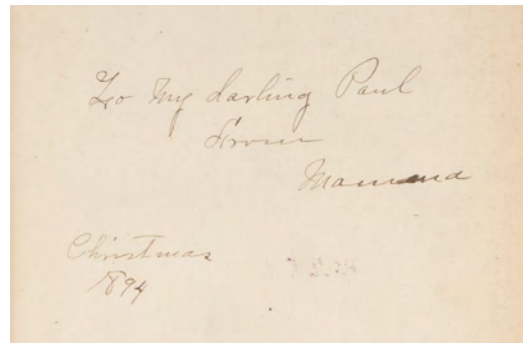 To My darling Paul
From
Mamma
Christmas
1894